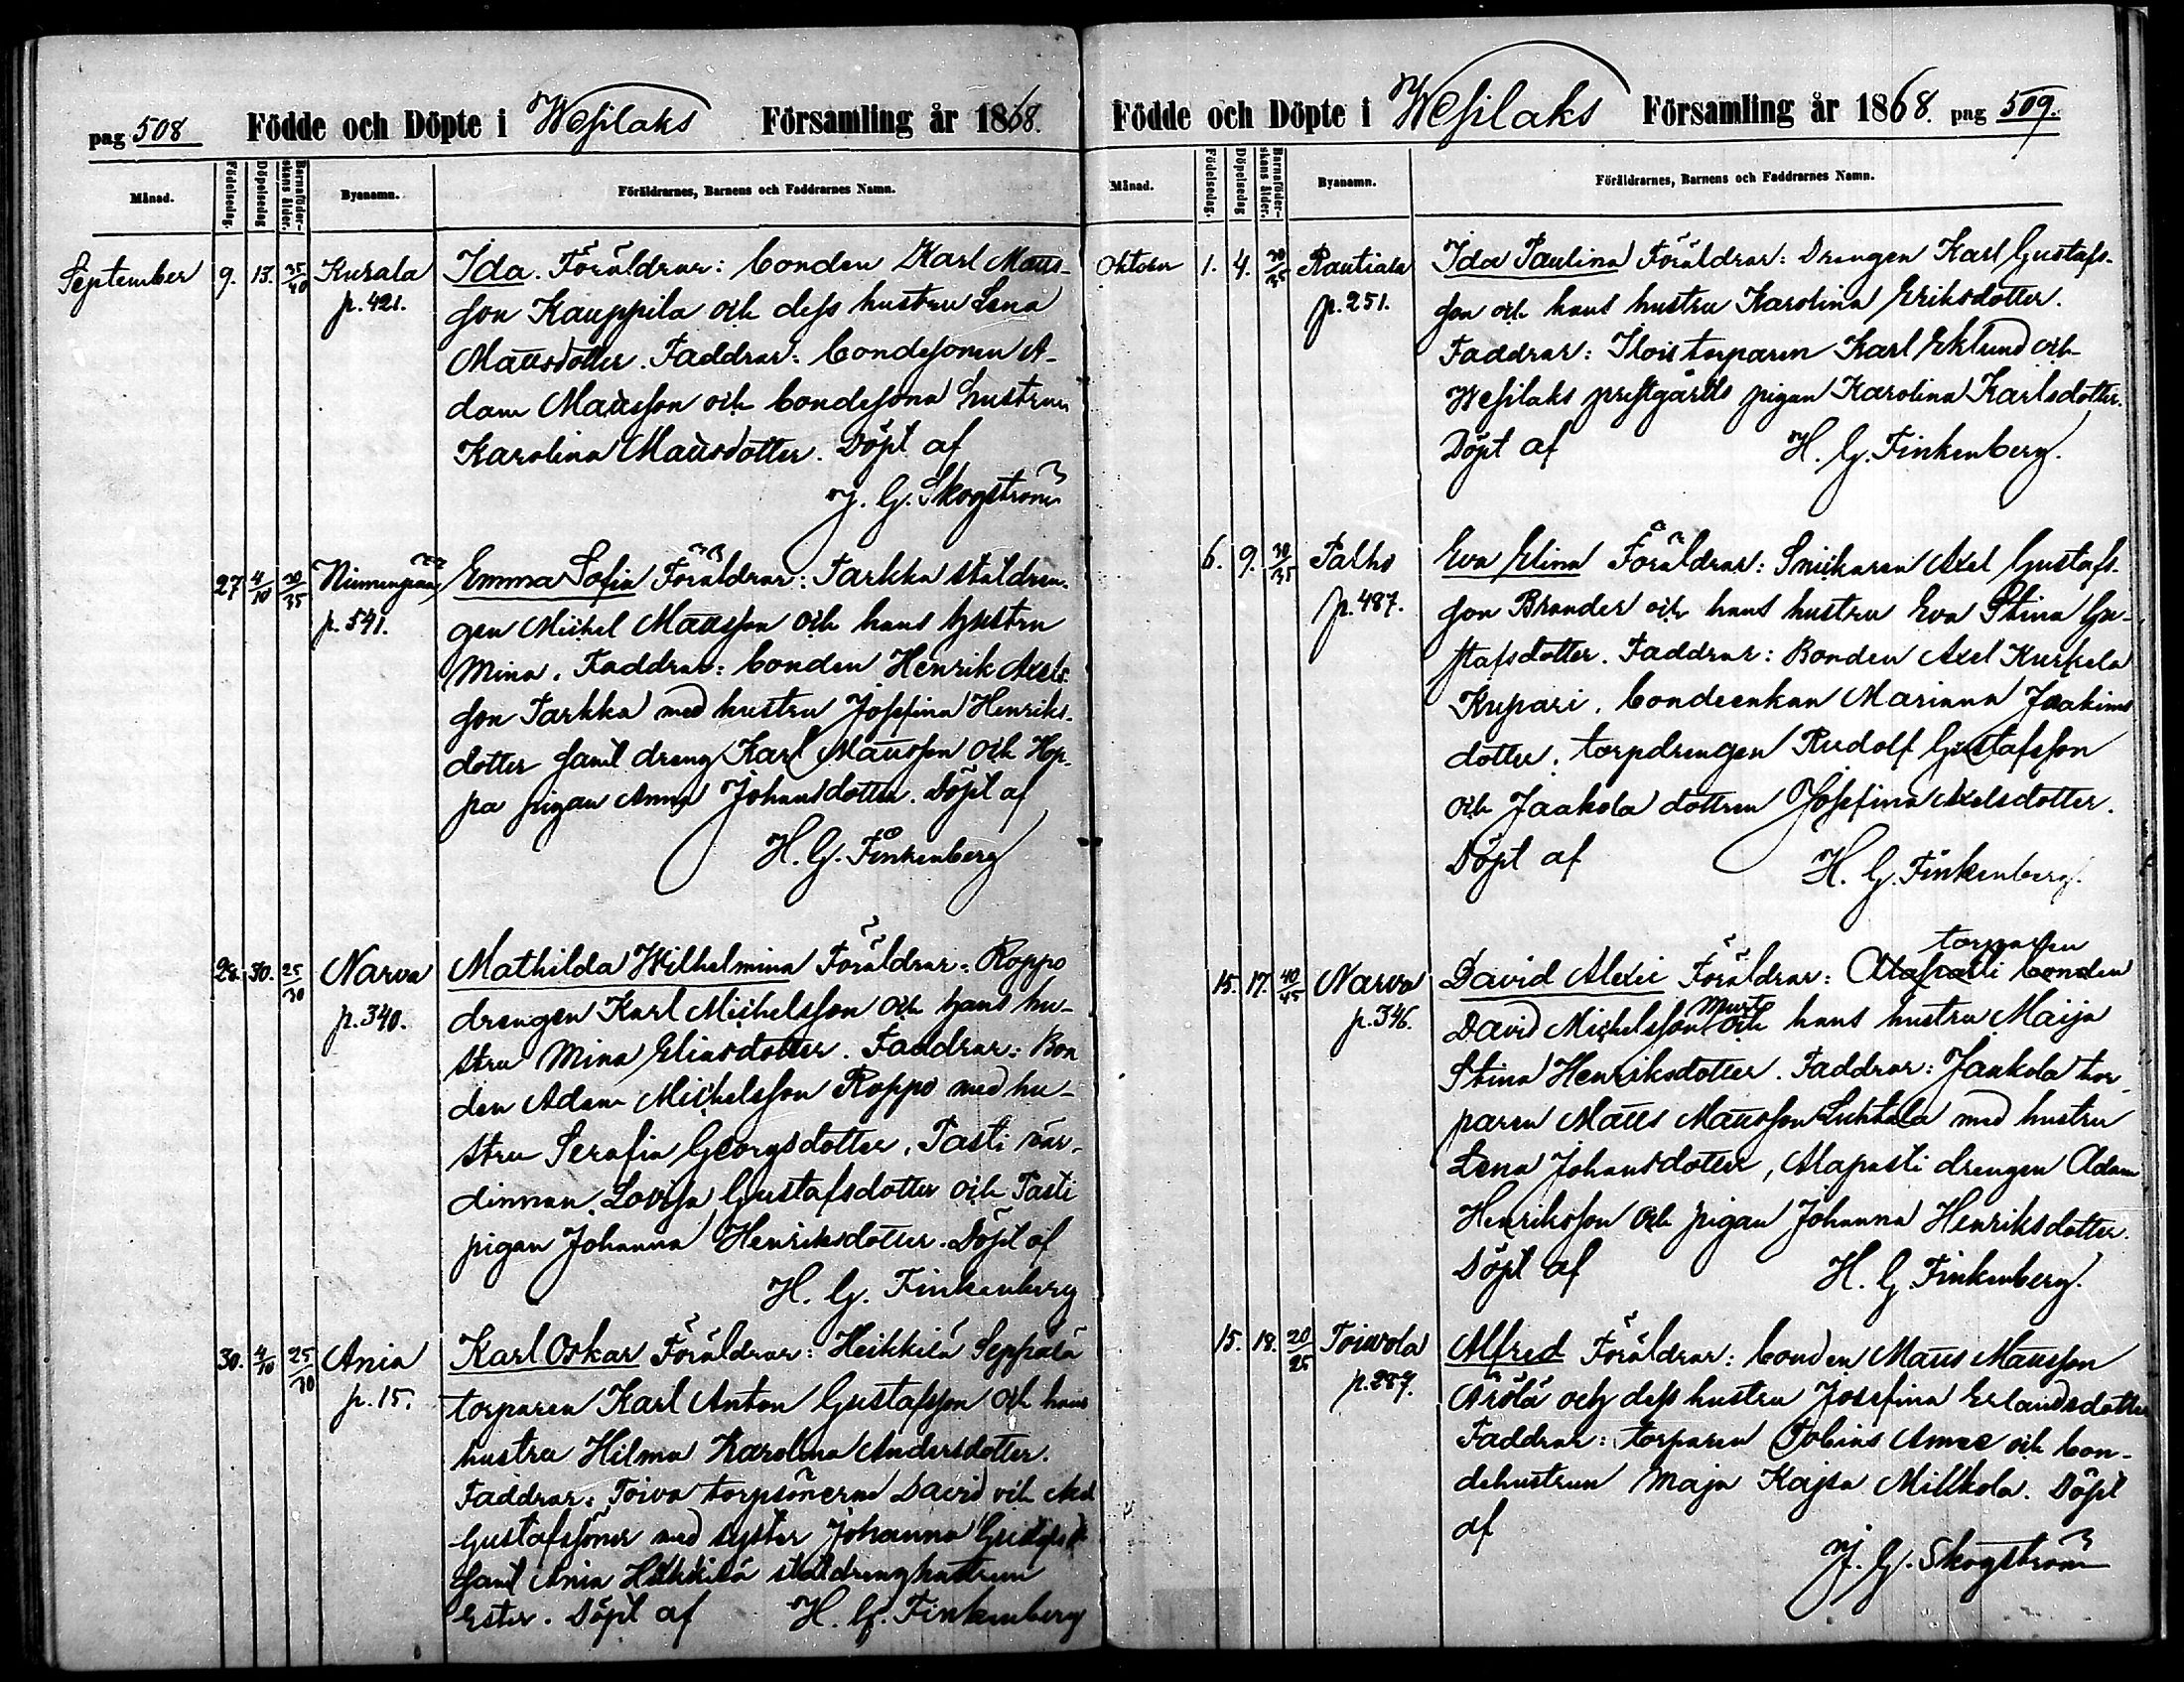 pag 508 Födde och Döpte i Wesilaks Församling år 1868.
Månad. Födelsedag. Döpelsedag Barnaföderskans ålder. Byanamn. Föräldrarnes, Barnens och Faddrarnes Namn.
September 9. 13. 35/40 Kurala Ida. Föräldrar: bonden Karl Matts-
p. 421. son Kauppila och dess hustru Lena
Mattsdotter. Faddrar: bondesonen A-
dam Mattsson och bondesona hustrun
Karolina Mattsdotter. Döpt af
J. G. Skogström
27 4/10 30/35 Niemenpää Emma Sofia Föräldrar: Parkka staldren-
p. 541. gen Michel Mattsson och hans hustru
Mina. Faddrar: bonden Henrik Axels-
son Parkka med hustru Josefina Henriks-
dotter samt dreng Karl Mattsson och Hop-
pa pigan Anna Johansdotter. Döpt af
H. G. Finkenberg
28. 30. 25/30 Narva Mathilda Wilhelmina Föräldrar: Roppo
p. 340. drengen Karl Michelsson och hans hu-
stru Mina Eliasdotter. Faddrar: Bon
den Adam Michelsson Roppo med hu-
stru Serafia Georgsdotter, Pasti vär-
dinnan Lovisa Gustafsdotter och Pasti
pigan Johanna Henriksdotter. Döpt af
H. G. Finkenberg
30. 4/10 25/30 Ania Karl Oskar Föräldrar: Heikkilä Seppälä
p. 15. torparen Karl Anton Gustafsson och hans
hustru Hilma Karolina Andersdotter.
Faddrar: Toiva torpsönerne David och Axel
Gustafssöner med syster Johanna
samt Ania Heikkilä staldrenghustrun
Ester. Döpt af H. G. Finkenberg
Födde och Döpte i Wesilaks Församling år 1868. pag 509.
Månad. Födelsedag. Döpelsedag Barnaföderskans ålder. Byanamn. Föräldrarnes, Barnens och Faddrarnes Namn.
Oktober 1. 4. 30/35 Rautiala Ida Paulina Föräldrar: Drengen Karl Gustafs-
p. 251. son och hans hustru Karolina Eriksdotter.
Faddrar: Ilois torparen Karl Eklund och
Wesilaks prestgårds pigan Karolina Karlsdotter.
Döpt af H. G. Finkenberg.
6. 9. 30/35 Palho Eva Elina Föräldrar: Snickaren Axel Gustafs-
p. 487. son Brander och hans hustru Eva Stina Gu-
stafsdotter. Faddrar: Bonden Axel Kurkela
Kupari, bondeenkan Marianna Joakims
dotter, torpdrengen Rudolf Gustafsson
och Jaakola dottren Josefina Axelsdotter.
Döpt af H. G. Finkenberg.
torparen
15. 17. 40/45 Narva David Alexii Föräldrar: Alapasti bonden
p. 346. David Michelsson Murto och hans hustru Maija
Stina Henriksdotter. Faddrar: Jaakola tor-
paren Matts Mattsson Luhtala med hustru
Lena Johansdotter, Alapasti drengen Adam
Henriksson och pigan Johanna Henriksdotter.
Döpt af H. G. Finkenberg.
15. 18. 20/25 Toivola Alfred Föräldrar: bonden Matts Mattsson
p. 287. Arölä och dess hustru Josefina Erlandsdotter
Faddrar: torparen Tobias och bon-
dehustrun Maja Kajsa Mikkola. Döpt
af
J. G. Skogström